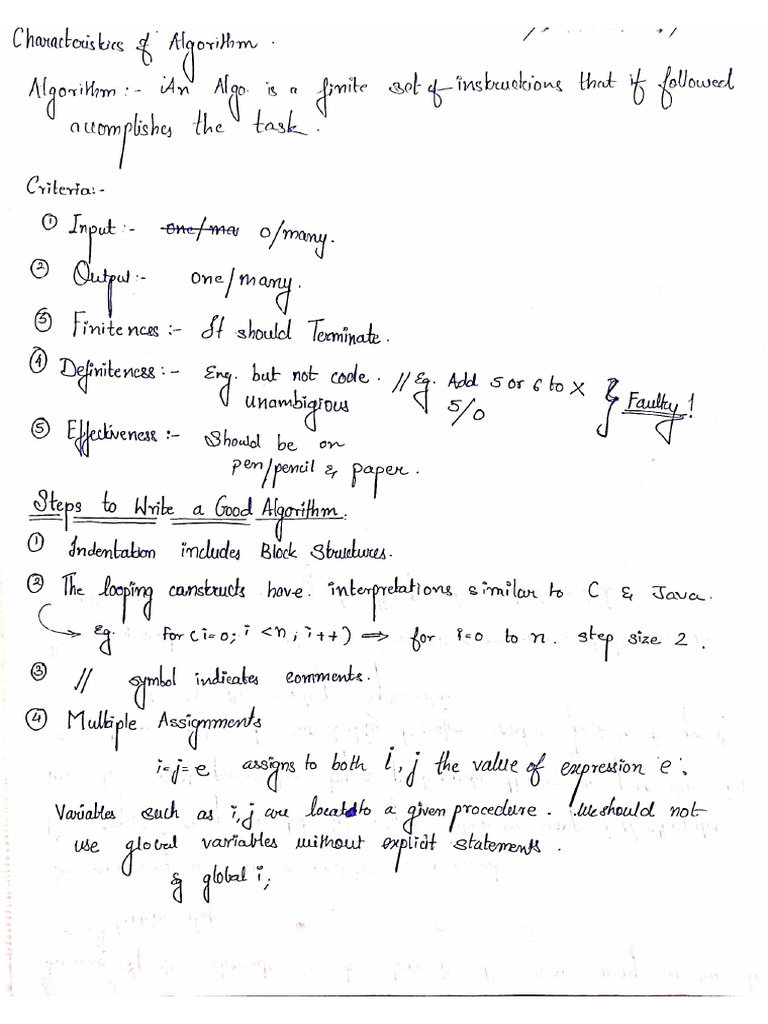 Characteristics of Algorithm.
Algorithm :- An Algo. is a finite set of instructions that if followed
accomplishes the task.
Criteria:-
① Input :- one/mar 0/many.
② Output:- one/many.
③ Finitences :- It should Terminate.
④ Definiteness :- Eng. but not code. // Eg. Add 5 or 6 to X } Faulty!
unambigious 5/0
⑤ Effectiveness :- Should be on
pen/pencil & paper.
Steps to Write a Good Algorithm.
① Indentation includes Block Structures.
② The looping constructs have interpretations similar to C & Java.
→ Eg. for (i=0; i <n; i++) ⇒ for i=0 to n. step size 2.
③ // symbol indicates comments.
④ Multiple Assignments
i=j=e assigns to both i, j the value of expression e.
Variables such as i,j are to a given procedure. We should not
use global variables without explicit statements.
Eg global i;